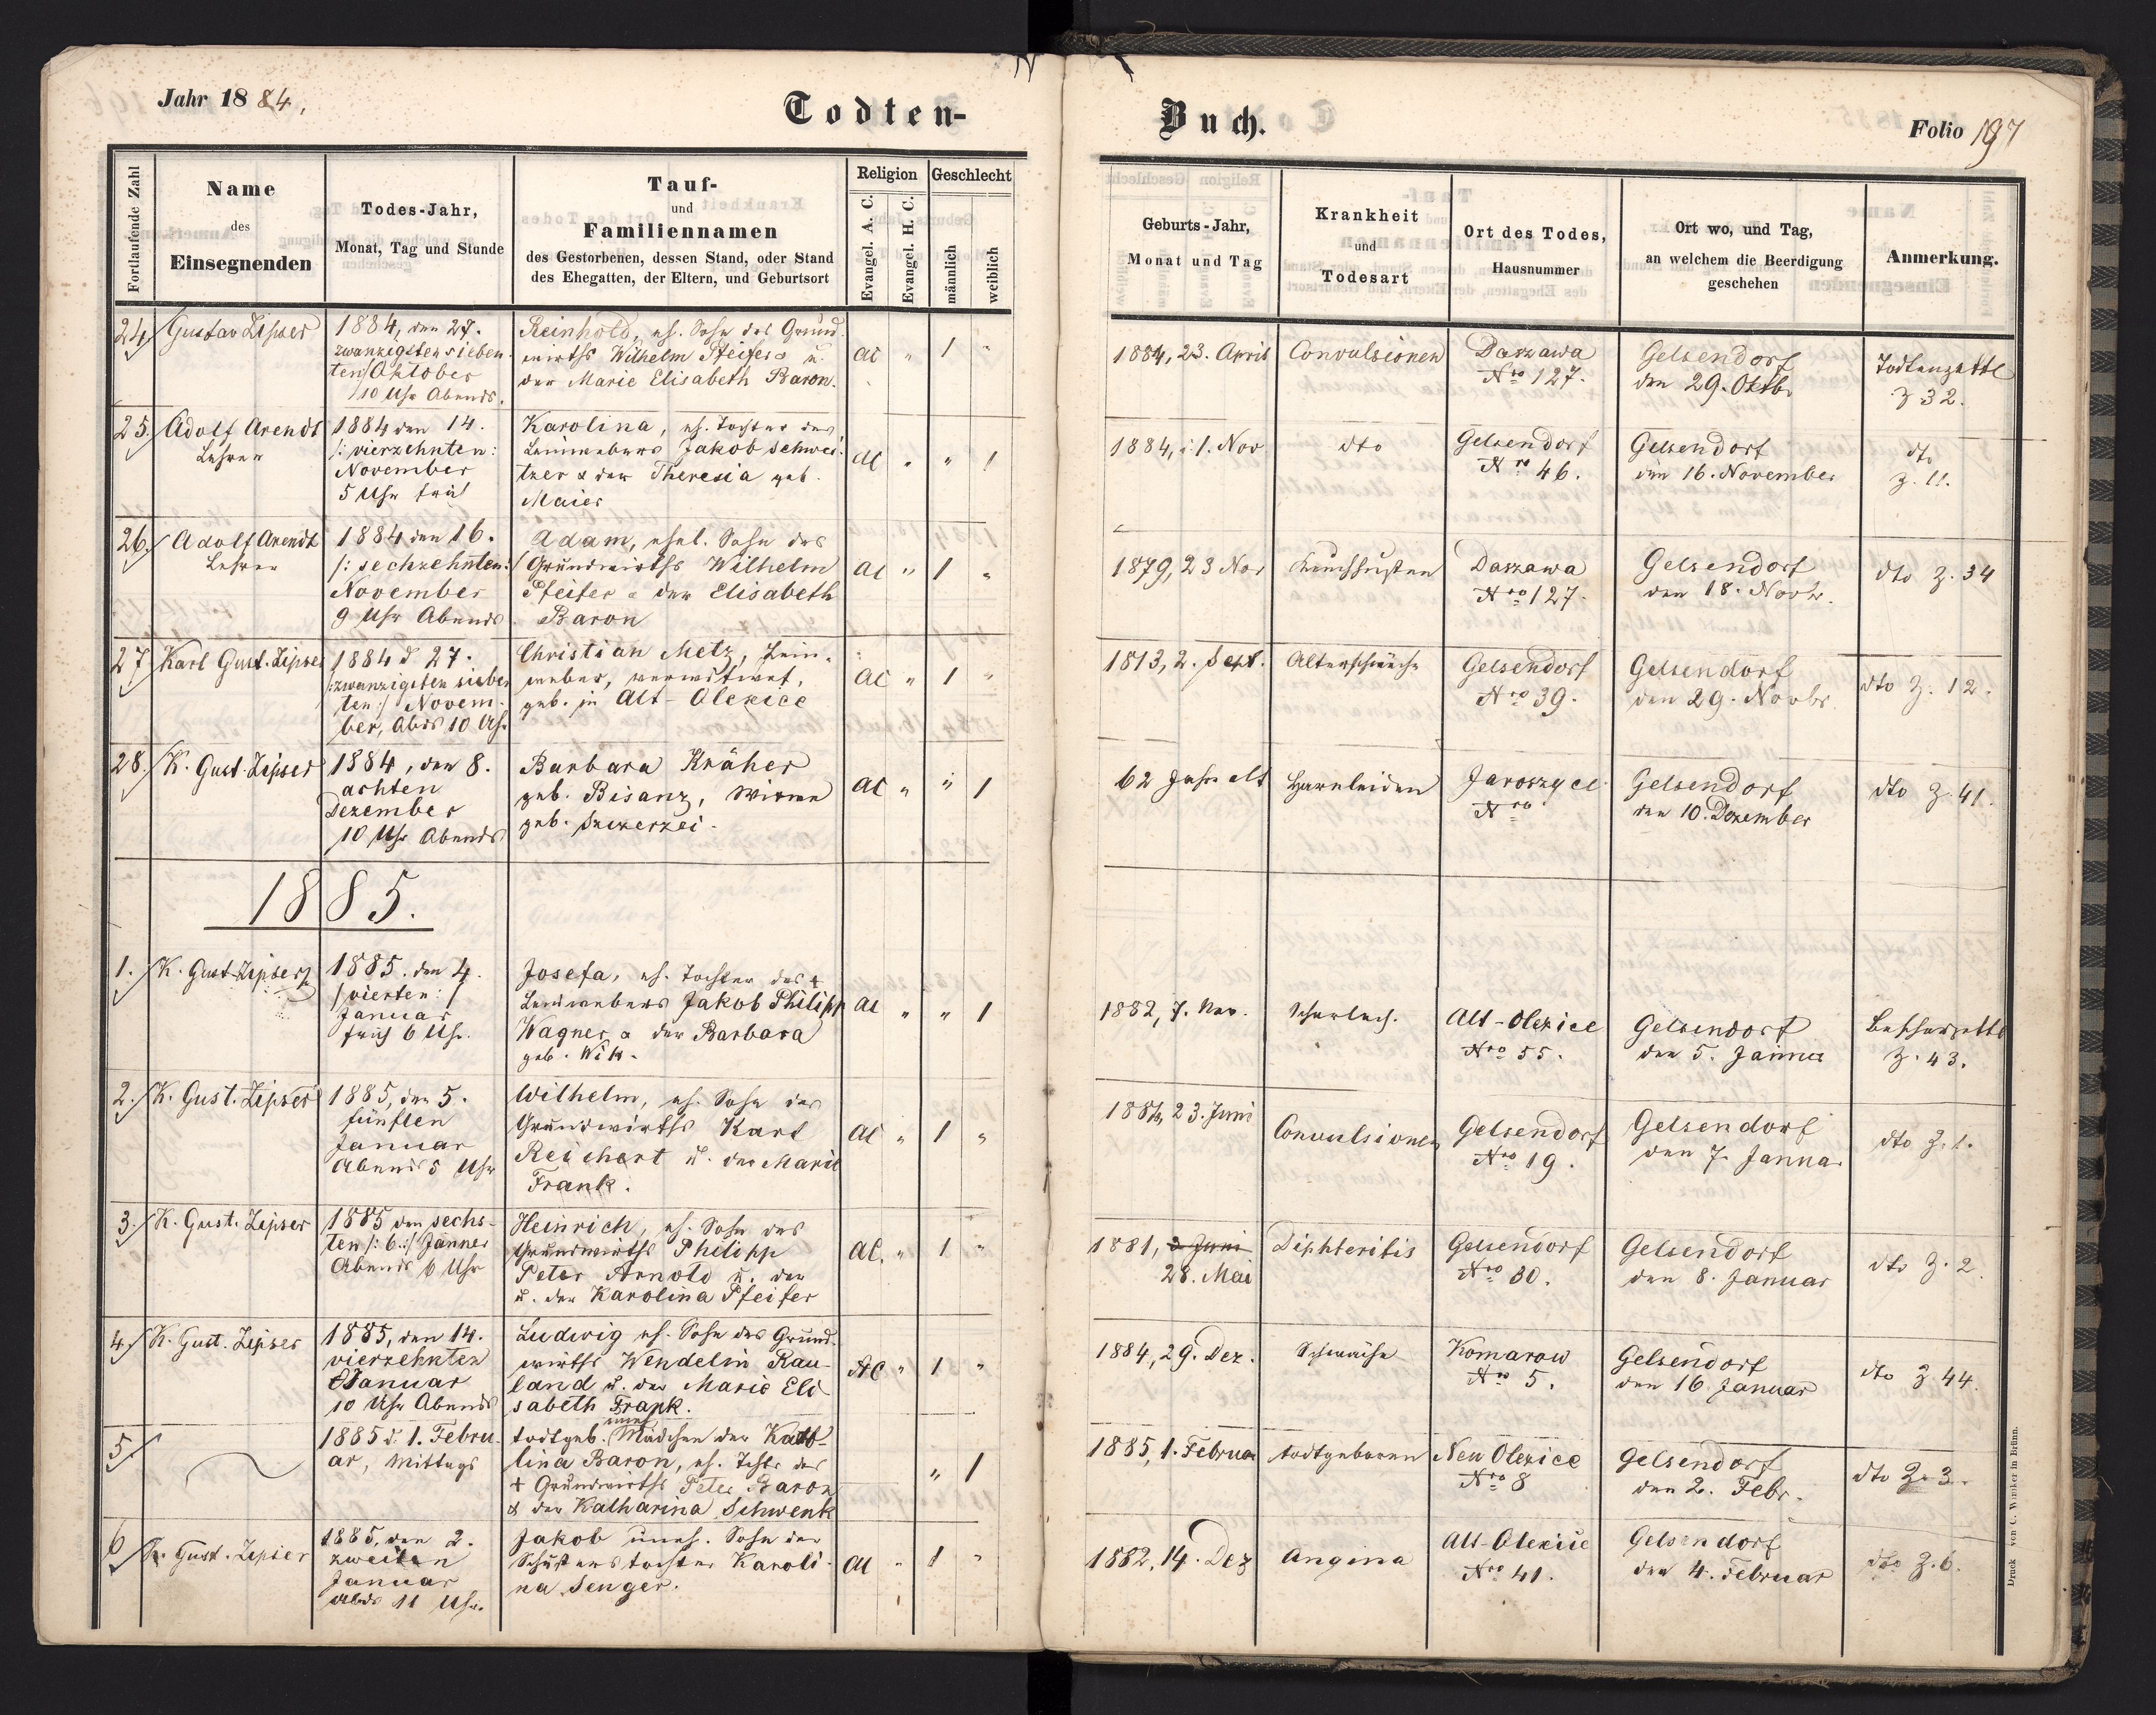 Jahr 1884.
Todten-
Buch.
Folio 197
Fortlaufende Zahl
Name
des
Einsegnenden
Todes-Jahr,
Monat, Tag und Stunde
Tauf-
und
Familiennamen
des Gestorbenen, dessen Stand, oder Stand
des Ehegatten, der Eltern, und Geburtsort
Religion
Evangel. A. C.
Evangel. H. C.
Geschlecht
männlich
weiblich
Geburts-Jahr,
Monat und Tag
Krankheit
und
Todesart
Ort des Todes,
Hausnummer
Ort wo, und Tag,
an welchem die Beerdigung
geschehen
Anmerkung.
24. Gustav Zipser
1884, den 27.
zwanzigsten sieben-
ten Oktober
10 Uhr Abends.
Reinhold, eh. Sohn des Grund-
wirths Wilhelm Pfeifer u.
der Marie Elisabeth Baron.
AC " 1 "
1884, 23. April
Convulsionen
Daszawa
Nro 127.
Gelsendorf
den 29. Oktb.
Todtenzettl
Z 32.
25. Adolf Arendt
Lehrer
1884 den 14.
/: vierzehnten :
November
5 Uhr früh
Karolina, eh. Tochter des
Leinwebers Jakob Schwei-
tzer & der Theresia geb.
Maier
AC " " 1
1884, 1. Nov
dto
Gelsendorf
Nro 46.
Gelsendorf
den 16. November
dto
Z. 11.
26. Adolf Arendt
Lehrer
1884 den 16.
/: sechzehnten :/
November
9 Uhr Abends
Adam, ehel. Sohn des
Grundwirths Wilhelm
Pfeifer & der Elisabeth
Baron
AC " 1 "
1879, 23 Nov
Keuchhusten
Daszawa
Nro 127.
Gelsendorf
den 18. Novb.
dto Z. 34
27 Karl Gust. Zipser
1884 d 27.
/:zwanzigsten sieben
ten:/ Novem-
ber, Abds 10 Uhr
Christian Metz, Lein-
weber, verwitwet,
geb. in Alt-Olexice
AC " 1 "
1813, 2. Sept.
Altersschwäche
Gelsendorf
Nro 39.
Gelsendorf
den 29. Novbr.
dto Z. 12.
28. K. Gust. Zipser
1884, den 8.
achten
Dezember
10 Uhr Abends
Barbara Kräher
geb. Bisanz, Witwe
geb.
AC " " 1
62 Jahr alt
Harnleiden
Nro
Gelsendorf
den 10. Dezember
dto Z. 41.
1885.
1. K. Gust Zipser
1885. den 4.
/ vierten : /
Januar
früh 6 Uhr.
Josefa, eh. Tochter des +
Leinwebers Jakob Philipp
Wagner & der Barbara
geb.
AC " " 1
1882, 7. Nov.
Scharlach.
Alt-Olexice
Nro 55.
Gelsendorf
den 5. Januar
Z. 43.
2. K. Gust. Zipser
1885, den 5.
fünften
Januar
Abends 5 Uhr
Wilhelm, eh. Sohn des
Grundwirths Karl
Reichert u. der Marie
Frank.
AC " 1 "
1884, 23. Juni
Convulsionen
Gelsendorf
Nro 19.
Gelsendorf
den 7. Januar
dto Z. 1.
3. K. Gust. Zipser
1885 den sechs-
ten /: 6 :/ Jänner
Abends 6 Uhr
Heinrich, eh. Sohn des
Grundwirths Philipp
Peter Arnold u. der
u. der Karolina Pfeifer
AC. " 1 "
1881, 2 Juni
28. Mai
Diphteritis
Gelsendorf
Nro 30.
Gelsendorf
den 8. Januar
dto Z. 2.
4. K. Gust. Zipser
1885, den 14.
vierzehnten
Januar
10 Uhr Abends
Ludwig eh. Sohn des Grund-
wirths Wendelin Rau-
land u. der Marie Eli
sabeth Frank.
AC " 1 "
1884, 29. Dez.
Schwäche
Komarow
Nro 5.
Gelsendorf
den 16. Januar
dto Z 44.
5
1885 d. 1. Febru-
ar, Mittags
uneh
todtgeb. Mädchen der
lina Baron, eh. Tocht. des
+ Grundwirths Peter Baron
& der Katharina Schwenk
" 1
1885, 1. Februar
todtgeboren
Neu Olexice
Nro 8
Gelsendorf
den 2. Febr.
dto Z. 3.
6 K. Gust. Zipser
1885, den 2.
zweiten
Januar
Abds 11 Uhr.
Jakob uneh. Sohn der
Schusterstochter Karoli-
na Senger.
AC " 1 "
1882, 14. Dez
Angina
Alt-Olexice
Nro 41.
Gelsendorf
den 4. Februar
dto Z. 6.
Druck von C. Winiker in Brünn.